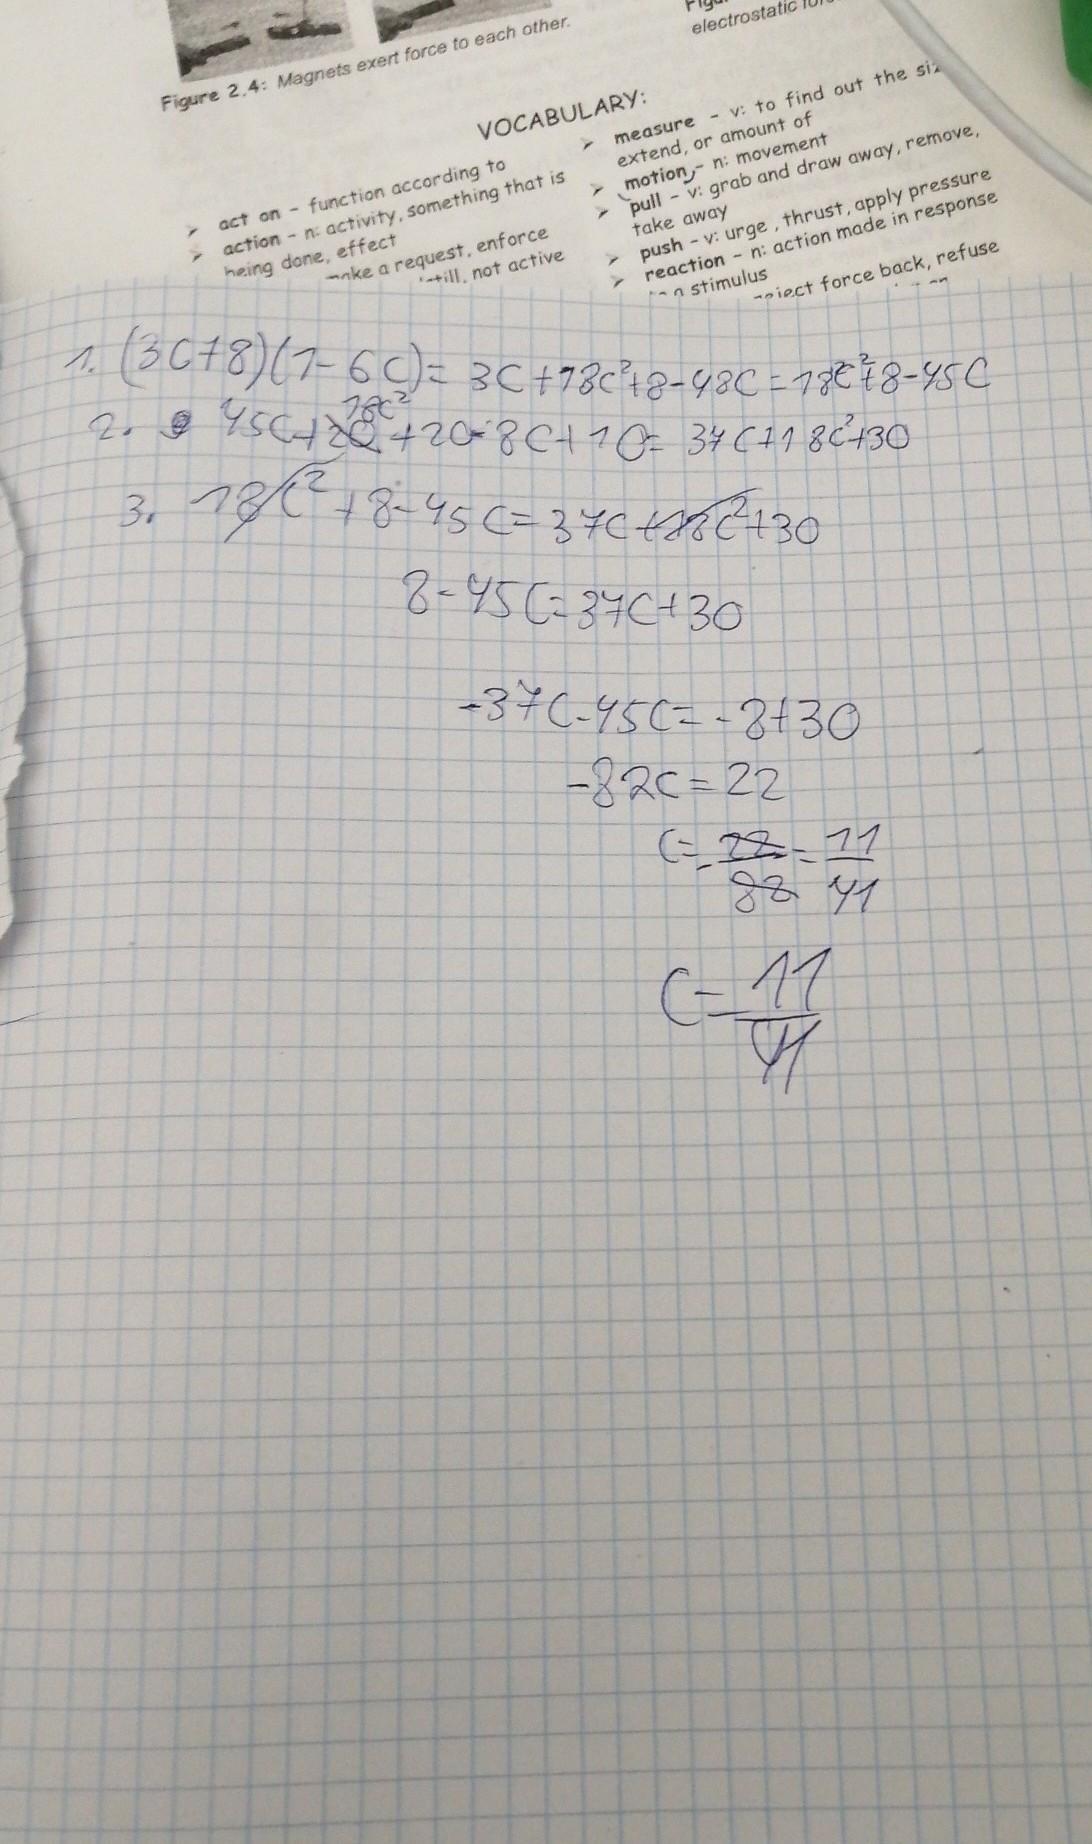 Figure 2.4: Magnets exert force to each other.
electrostatic
VOCABULARY:
➢ act on - function according to
➢ action - n: activity, something that is
being done, effect
make a request, enforce
still, not active
➢ measure - v: to find out the
extend, or amount of
➢ motion - n: movement
➢ pull - v: grab and draw away, remove,
take away
➢ push - v: urge, thrust, apply pressure
➢ reaction - n: action made in response
stimulus
force back, refuse
1. (3C+8)(1-6C)= 3C+18C²+8-48C=18C²+8-45C
2. 45C+18C²+20-8C+10= 37C+18C²+30
3. 18C²+8-45C=37C+18C²+30
8-45C=37C+30
-37C-45C=-8+30
-82C=22
C=-22/82=11/41
C=-11/41